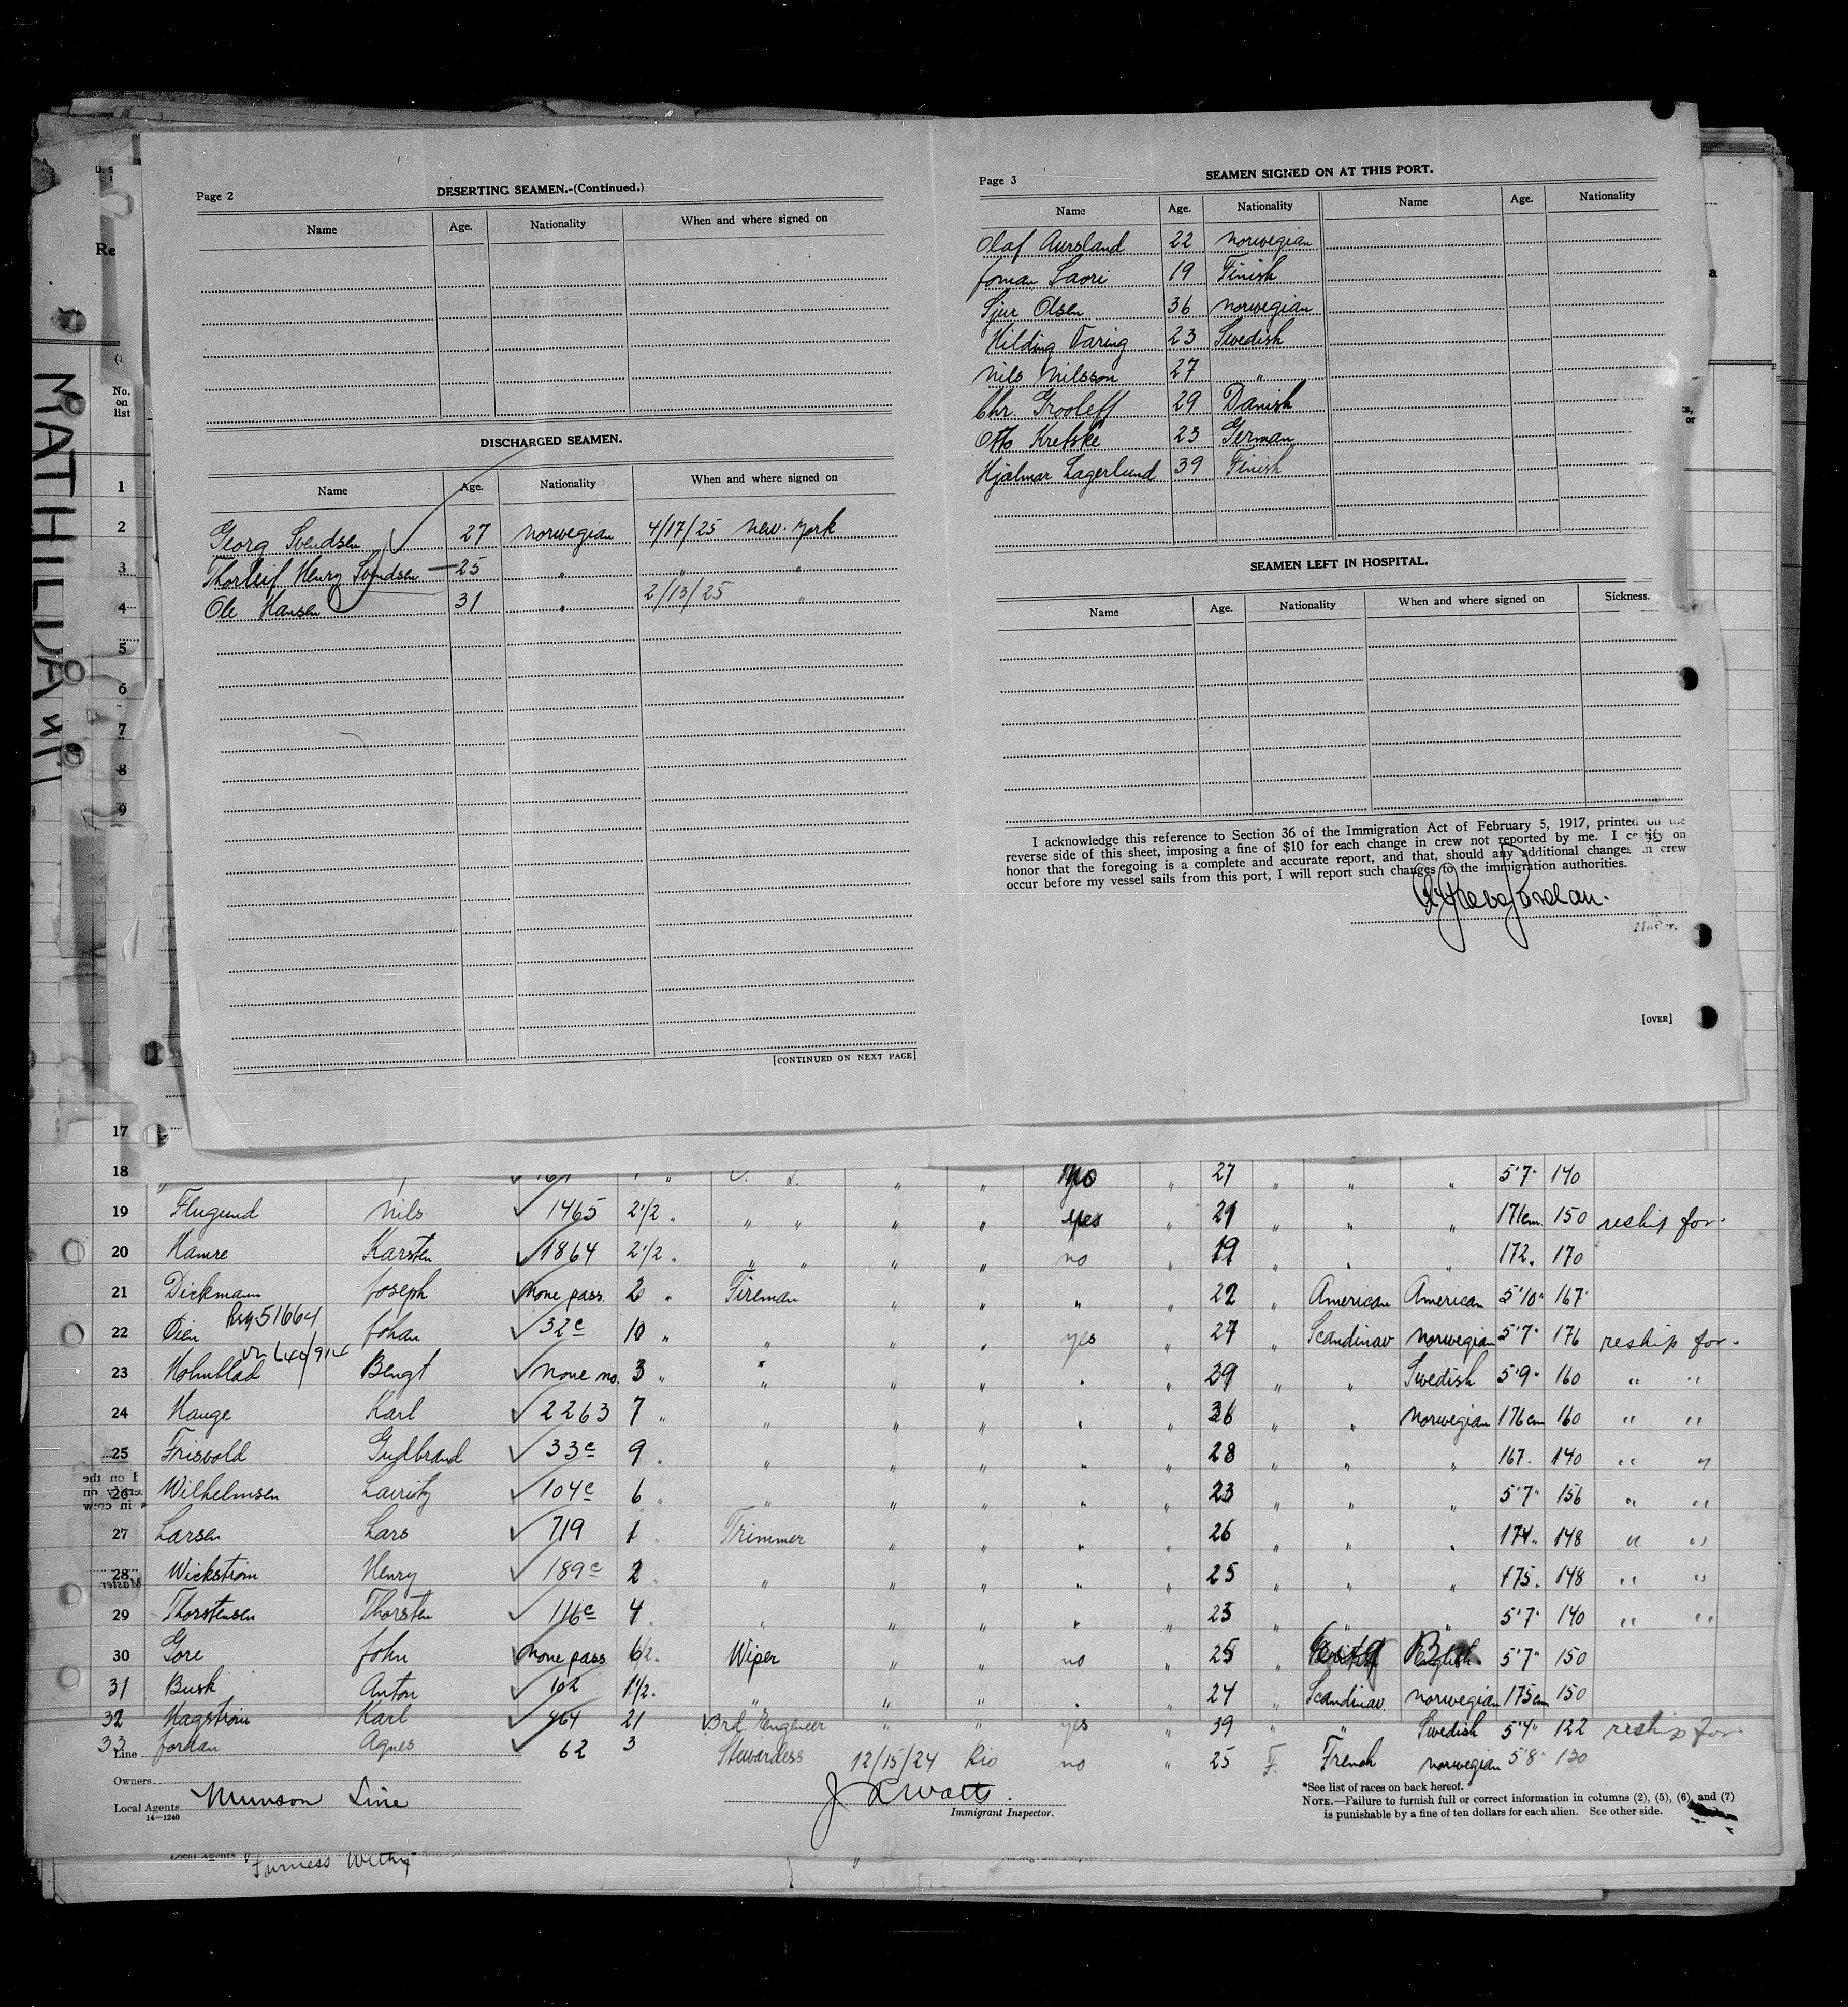 MATHILDA
Page 2
DESERTING SEAMEN.-(Continued.)
Name Age. Nationality When and where signed on
DISCHARGED SEAMEN.
Name Age. Nationality When and where signed on
Georg Svendsen 27 Norwegian 4/17/25 New-York
Thorleif Henry Svendsen 25 " " "
Ole Hansen 31 " 2/13/25 "
[CONTINUED ON NEXT PAGE]
Page 3
SEAMEN SIGNED ON AT THIS PORT.
Name Age. Nationality Name Age. Nationality
Olaf Aursland 22 Norwegian
19 Finish
Sjur Olsen 36 Norwegian
Hilding Faring 23 Swedish
Nils Nilsson 27 "
Chr. Grooleff 29 Danish
Otto Krefske 23 German
Hjalmar Lagerlund 39 Finish
SEAMEN LEFT IN HOSPITAL.
Name Age. Nationality When and where signed on Sickness.
I acknowledge this reference to Section 36 of the Immigration Act of February 5, 1917, printed on the
reverse side of this sheet, imposing a fine of $10 for each change in crew not reported by me. I certify on
honor that the foregoing is a complete and accurate report, and that, should any additional changes in crew
occur before my vessel sails from this port, I will report such changes to the immigration authorities.
Master.
[OVER]
U. S
Re
No.
on
list
1
2
3
4
5
6
7
8
9
17
18 no " 27 " " " 5'7" 140
19 Flugund Nils 1465 2 1/2 " " " " " yes " 21 " " " 171 cm 150 reship for.
20 Hamre Karsten 1864 2 1/2 " " " " " no " 19 " " " 172 " 170
21 Dickmann Joseph None pass. 2 " Fireman " " " " 22 " American American 5'10" 167
22 Øien Johan 32c 10 " " " " yes " 27 " Scandinav Norwegian 5'7" 176 reship for.
23 Holmblad Bengt None no. 3 " " " " " " 29 " " Swedish 5'9" 160 " "
24 Hauge Karl 2263 7 " " " " " " 36 " " Norwegian 176 cm 160 " "
25 Frisvold Gudbrand 33c 9 " " " " " " 28 " " " 167 " 140 " "
26 Wilhelmsen 104c 6 " " " " " " 23 " " " 5'7" 156 " "
27 Larsen Lars 719 1 " Trimmer " " " " 26 " " " 174 " 148 " "
28 Wickstrøm Henry 189c 2 " " " " " " 25 " " " 175 " 148 " "
29 Thorstensen Thorsten 116c 4 " " " " " " 23 " " " 5'7" 140 " "
30 Gore John None pass 6/2 " Wiper " " no " 25 " English 5'7" 150
31 Busk Anton 102 1 1/2 " " " " " " 24 " Scandinav Norwegian 175 cm 150
32 Hagstrøm Karl 464 21 3rd. Engineer " " yes " 39 " " Swedish 5'4" 122 reship for
33 Jordan Agnes 62 3 Stewardess 12/15/24 Rio no " 25 F. French Norwegian 5'8" 130
Line
Owners
Local Agents Munson Line
14—1240
J Watts.
Immigrant Inspector.
*See list of races on back hereof.
NOTE.—Failure to furnish full or correct information in columns (2), (5), (6), and (7)
is punishable by a fine of ten dollars for each alien. See other side.
Local Agents Furness Withy